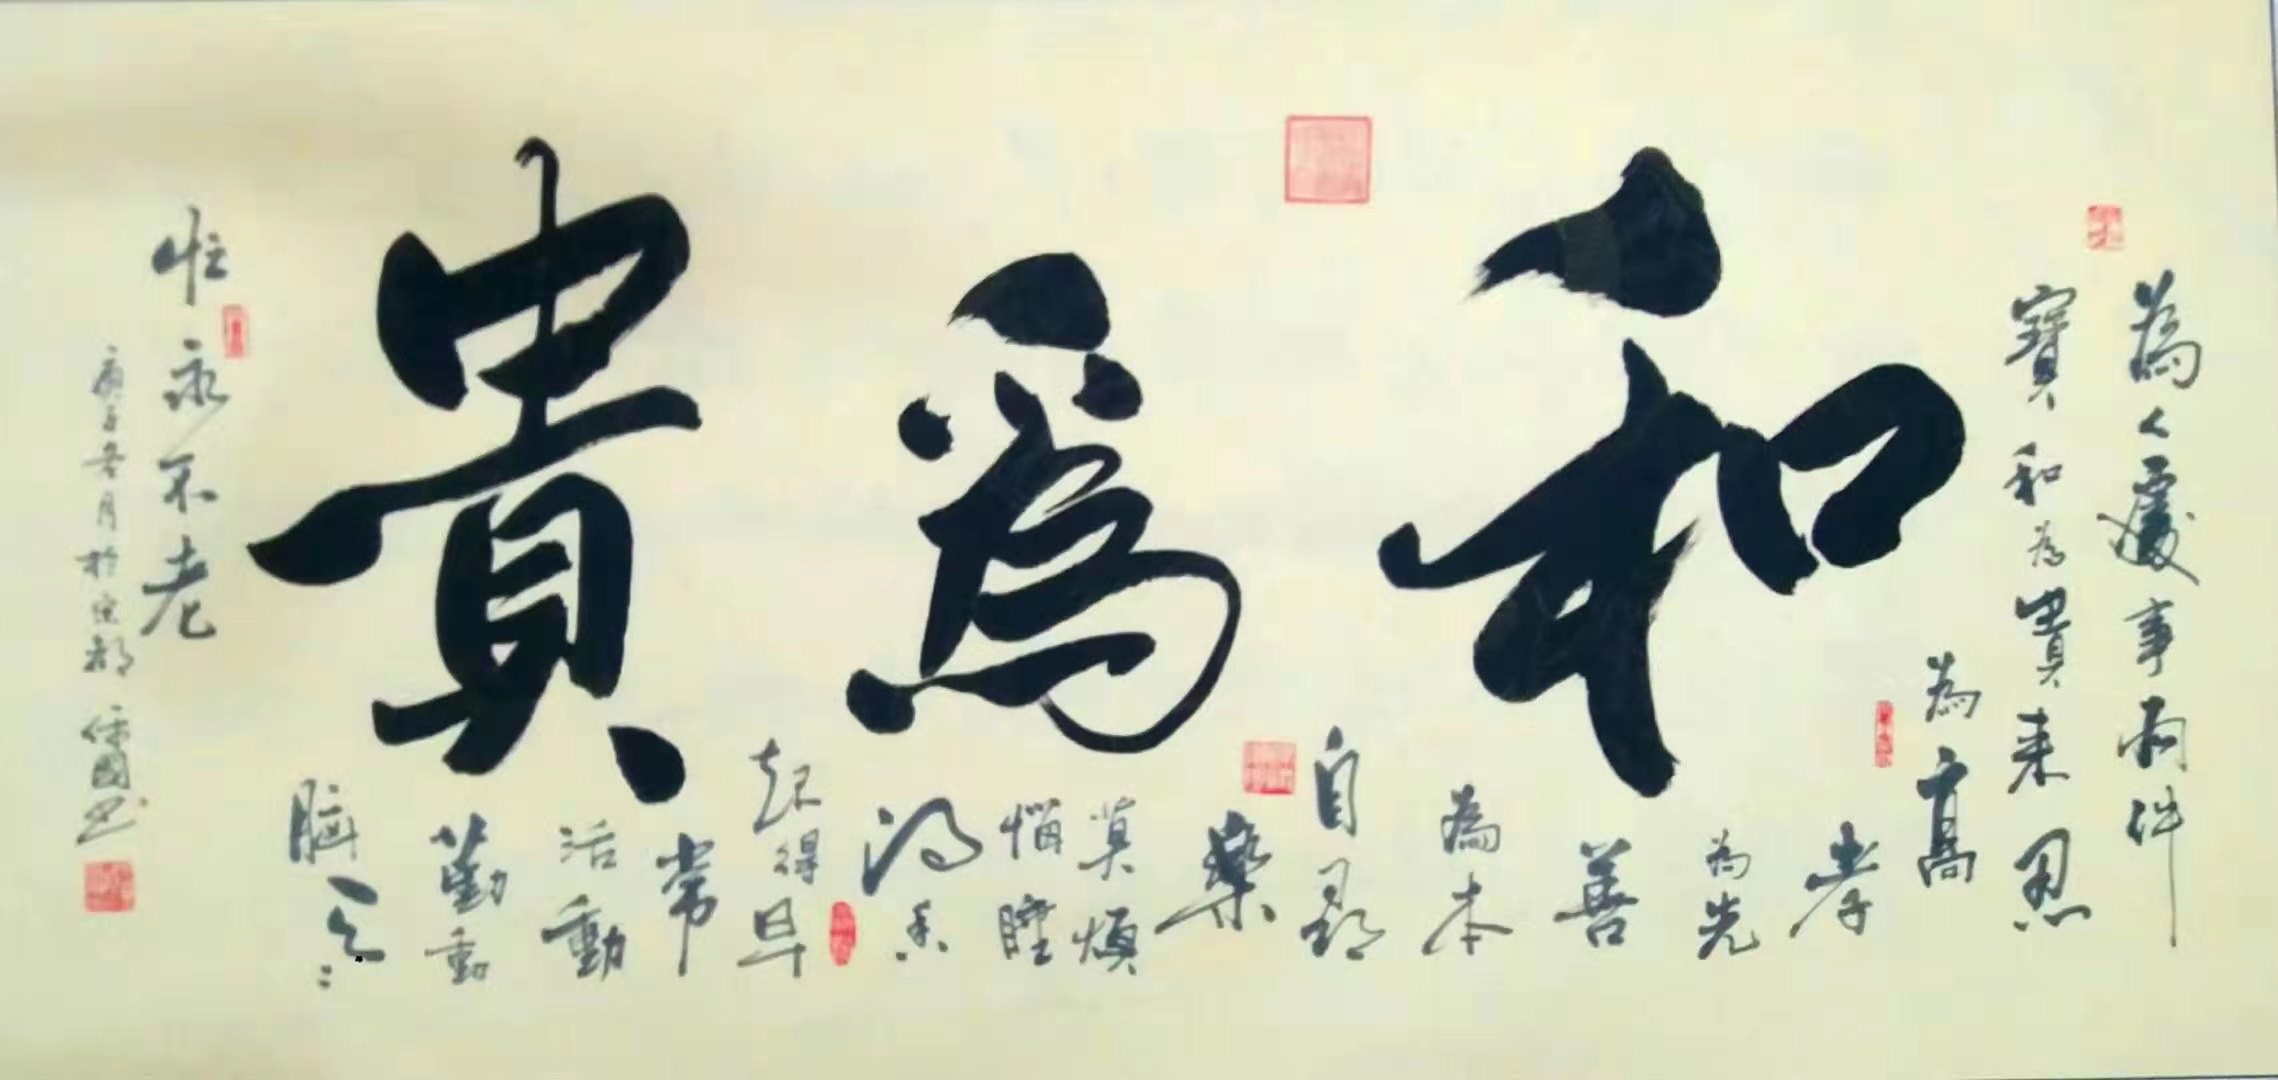 和為貴
為人處事兩件
寶和為貴来忍
為高
孝
為先
善
為本
自尋
樂
莫煩
惱睡
得香
起得早
常
活動
勤動
腦
永不老
庚子冬月於京都
國書